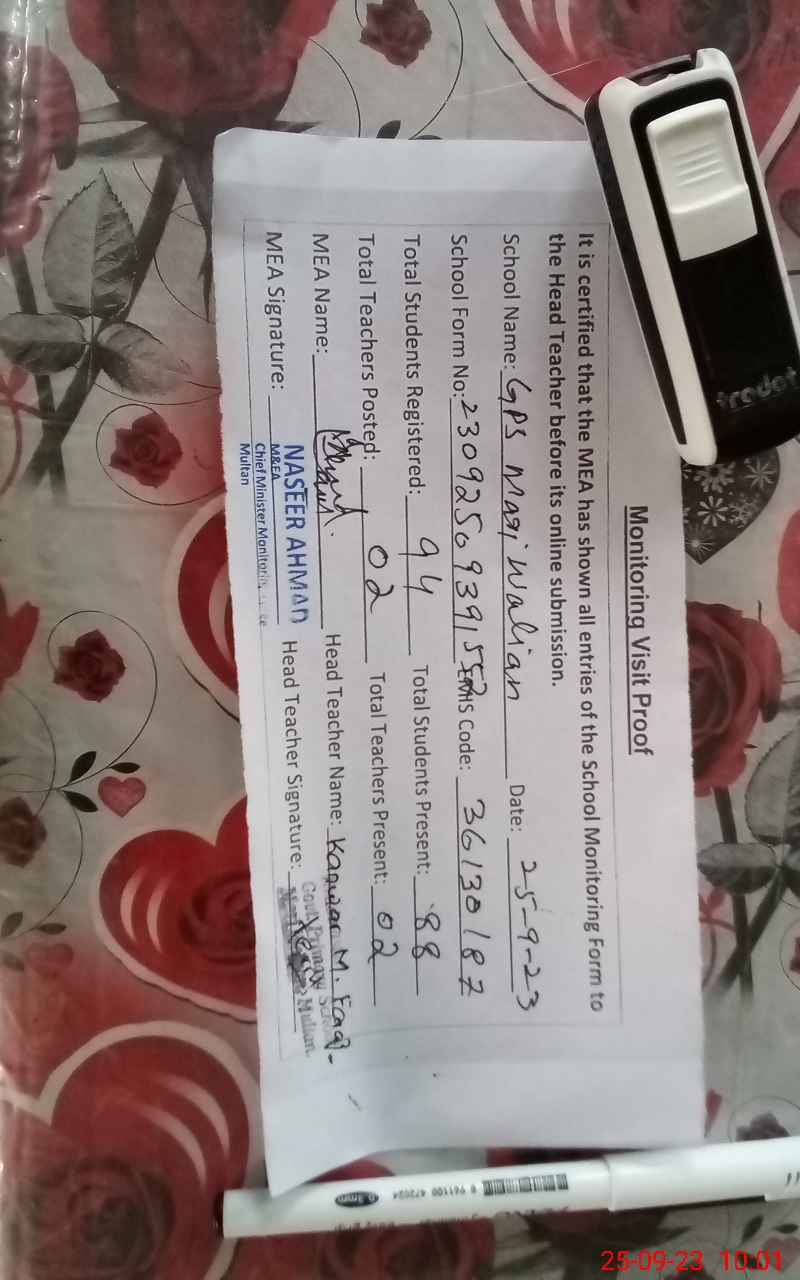 Monitoring Visit Proof
It is certified that the MEA has shown all entries of the School Monitoring Form to
the Head Teacher before its online submission.
School Name: GPS Marj Walian Date: 25-9-23
School Form No: EMIS Code: 36130187
Total Students Registered: 94 Total Students Present: 88
Total Teachers Posted: 02 Total Teachers Present: 02
MEA Name: Head Teacher Name: M.
MEA Signature: NASEER AHMAD Head Teacher Signature:
M&EA
Chief Minister Monitoring
Multan
Govt. Primary School
Multan.
tredot
8 961100 472024
25-09-23 10:01